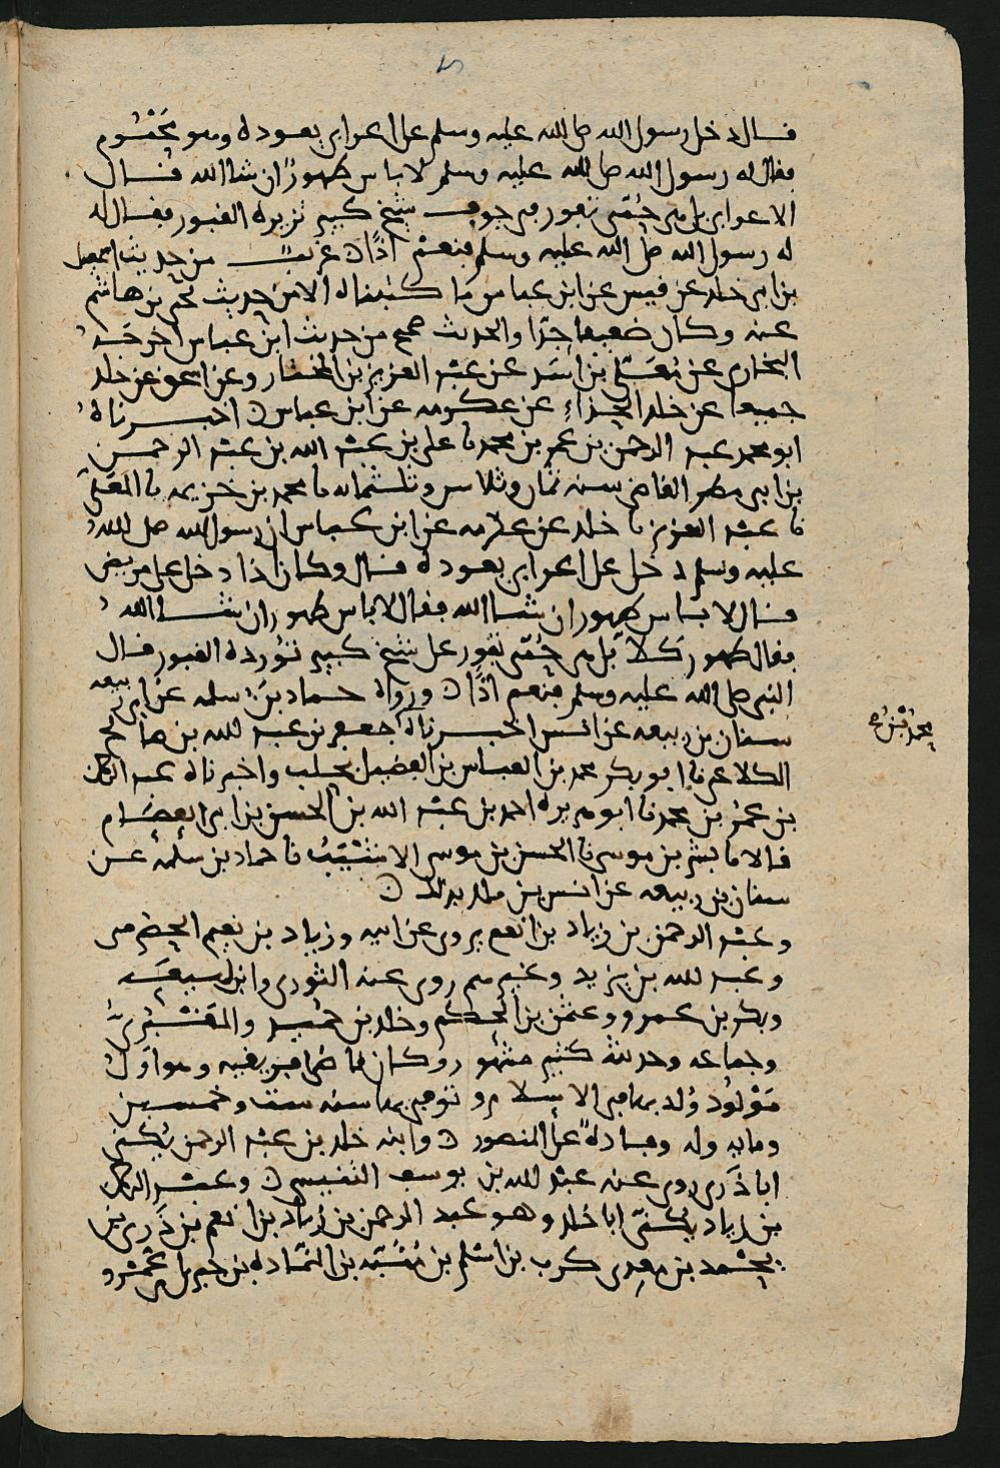 قال دخل رسول الله صلى الله عليه وسلم على اعرابي يعوده وهو محموم
فقال له رسول الله صلى الله عليه وسلم لا باس طهورٌ ان شا الله فقال
الاعرابي بل هي حُمّى تفور في جوف شيخ كبير تزيره القبور فقال له
له رسول الله صلى الله عليه وسلم فنعم اذًا ن غريبٌ من حديث اسمعيل
بن ابي خلد عن قيس عن ابن عباس ما كتبناه الا من حديث يحيى بن هاشم
عنه وكان ضعيفا جدّا والحديث صحيح من حديث ابن عباس اخرجَهُ
البخاري عن مُعَلّى بن اسَد عن عبد العزيز بن المختار وعن اسحق عن خلد
جميعا عن خلد الحذاءِ عن عكرمه عن ابن عباس ن اخبرناهُ
ابو محمد عبد الرحمن بن عمر بن محمد نا علي بن عبد الله بن عبد الرحمن
بن ابي مطر القاضي سنه ثمان وثلاثين وثلثمائه نا محمد بن خزيمه نا المعَلّى
نا عبد العزيز نا خلد عن عكرمه عن ابن عباس ان رسول الله صلى الله
عليه وسلم دخل على اعرابي يعوده قال وكان اذا دخل على مريض
قال لا باس طهور ان شا الله فقال لا باس طهور ان شا الله
فقال طهور كلا بل هي حُمّى تفور على شيخ كبير تُورده القبور قال
النبي صلى الله عليه وسلم فنعم اذًا ن ورواه حماد بن سلمه عن ابي ربيعه
سنان بن ربيعه عن انس اخبرناه جعفر بن عبد الله بن هاشم
الكلاعي نا ابو بكر محمد بن العباس بن الفضيل بحلب واخبرناه عبد الرحمن
بن عمر بن محمد نا ابو هريره احمد بن عبد الله بن الحسن بن ابي العِصَام
قالا نا بشر بن موسى نا الحسن بن موسى الاشيَبُ نا حماد بن سلمه عن
سنان بن ربيعه عن انس بن ملك بذلك ن
وعبد الرحمن بن زياد بن انعم يروي عن ابيه وزياد بن نعيم الحضرمي
وعبد الله بن يزيد وغيرهم روى عنه الثوري وابن لهيعَه
وبكر بن عمرو وعثمن بن الحكم وخلد بن حُميد والمقبُريُّ
وجماعه وحديثه كثير مشهور وكان قاضي افريقيه وهو اول
مَوْلود وُلد بها في الاسلام وتوفي بها سنه ست وخمسين
ومايه وله وفادهٌ على المنصور ن وابنه خلد بن عبد الرحمن يُكنى
ابا ذَرى روى عنه عبد الله بن يوسف التنيسي ن وعبد الرحمن
بن زياد يكنّى ابا خلد وهو عبد الرحمن بن زياد بن انعم بن ذَرى بن
يحْمد بن معدي كرب بن اسلم بن مُنَبّه بن النّمَاده بن حيويل بن عَمْرو